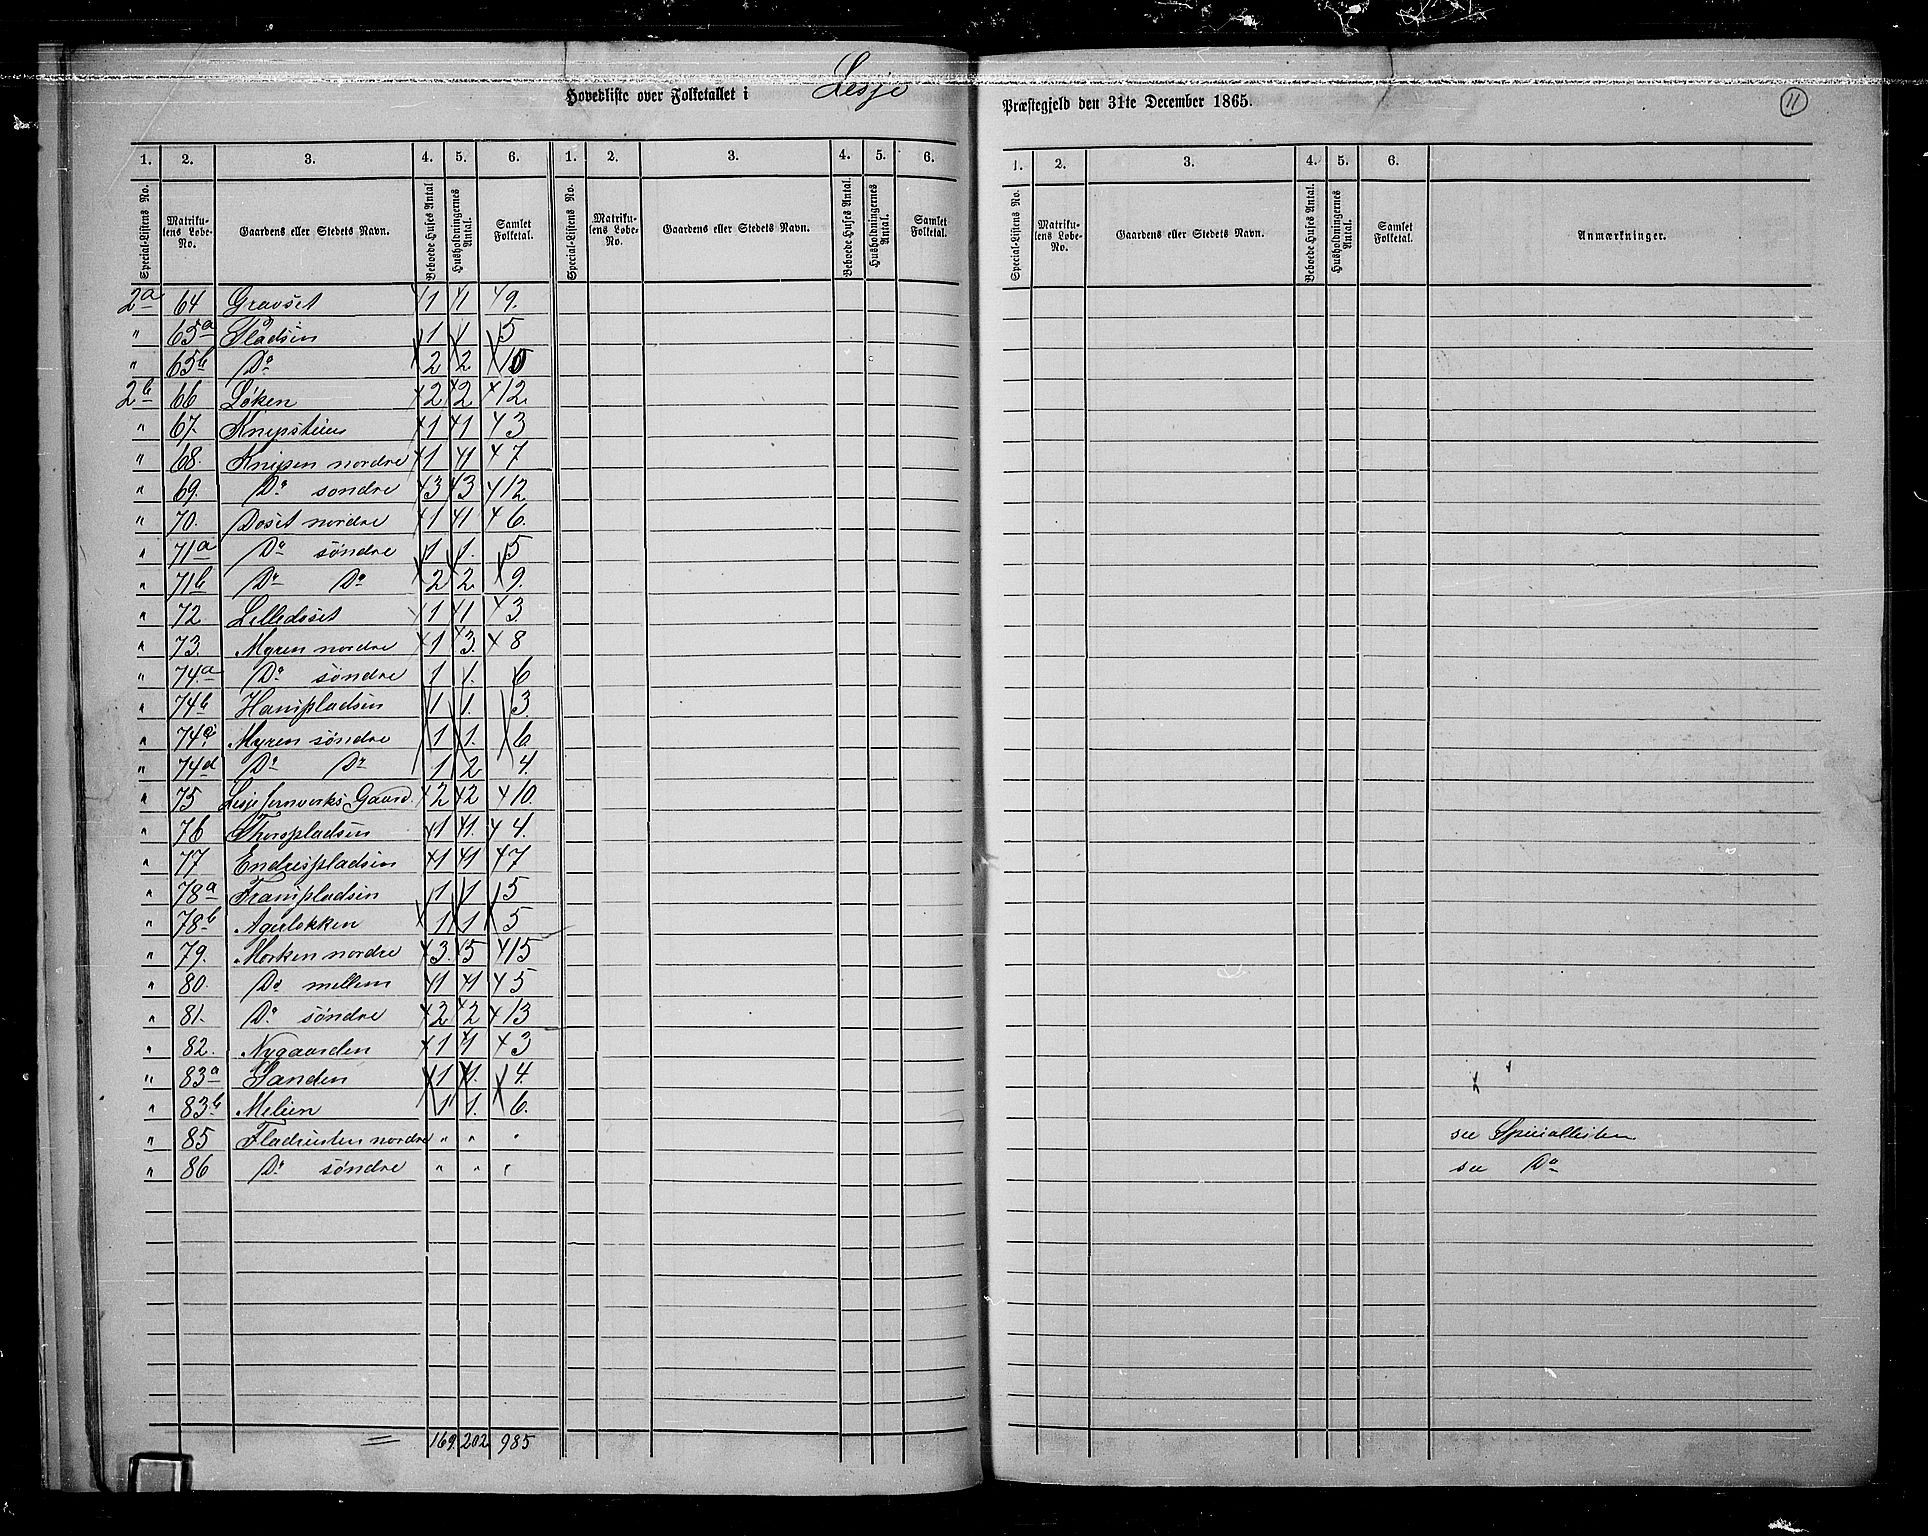 Hovedliste over Folketallet i Lesje Præstegjeld den 31te December 1865.
11
1. 2. 3. 4. 5. 6. 1. 2. 3. 4. 5. 6.
Special-Listens No. Matrikulens Løbe-No. Gaardens eller Stedets Navn. Beboede Huses Antal Husholdningernes Antal. Samlet Folketal. Special-Listens No. Matrikulens Løbe-No. Gaardens eller Stedets Navn. Beboede Huses Antal. Husholdningernes Antal. Samlet Folketal.
1. 2. 3. 4. 5. 6.
Special-Listens No. Matrikulens Løbe-No. Gaardens eller Stedets Navn. Beboede Huses Antal. Husholdningernes Antal. Samlet Folketal. Anmærkninger.
2a 64 Gravset 1 1 9.
" 65a Pladsen 1 1. 5
" 65b Do 2 2 10
2b 66 Løken 2 2 12.
" 67. 1 1 3
" 68. Knipen nordre 1 1 7
" 69. Do søndre 3 3 12
" 70. Doset nordre 1 1 6.
" 71a Do søndre 1 1. 5
" 71b Do Do 2 2. 9.
" 72 Lilledoset 1 1 3.
" 73. Myren nordre 1 3. 8
" 74a Do søndre 1 1. 6
" 74b Hanspladsen 1 1. 3.
" 74c Myren søndre 1 1. 6.
" 74d Do Do 1 2 4.
" 75 Lesje Jernverks Gaard 2 2 10.
" 76 Thorspladsen 1 1. 4.
" 77 Endrespladsen 1 1 7
" 78a Frampladsen 1 1 5
" 78b Agerløkken 1 1 5
" 79. Morken nordre 3. 5 15
" 80. Do mellem 1 1 5
" 81. Do søndre 2 2 13
" 82. Nygaarden 1 1 3
" 83a Sanden 1 1. 4.
" 83b Melien 1 1. 6.
" 85 nordre " " " see Speciallisten
" 86 Do søndre " " " see Do
169. 202 985